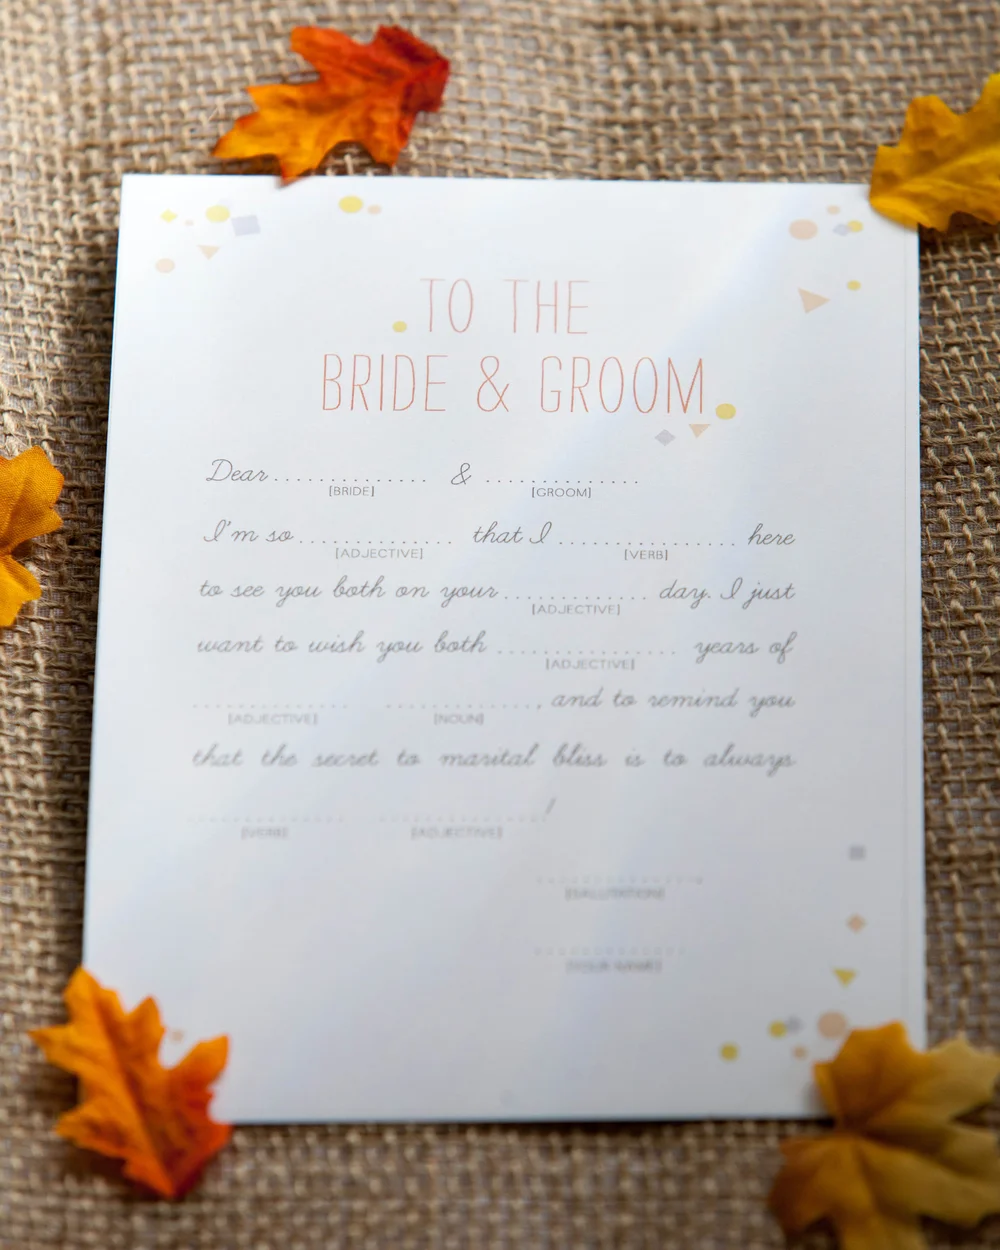 TO THE
BRIDE & GROOM
Dear ............. & .............
[BRIDE] [GROOM]
I'm so ............. that I ............... here
[ADJECTIVE] [VERB]
to see you both on your ............ day. I just
[ADJECTIVE]
want to wish you both ............... years of
[ADJECTIVE]
............. ............., and to remind you
[ADJECTIVE] [NOUN]
that the secret to marital bliss is to always
............. .............!
[VERB] [ADJECTIVE]
..............
[SALUTATION]
.............
[YOUR NAME]